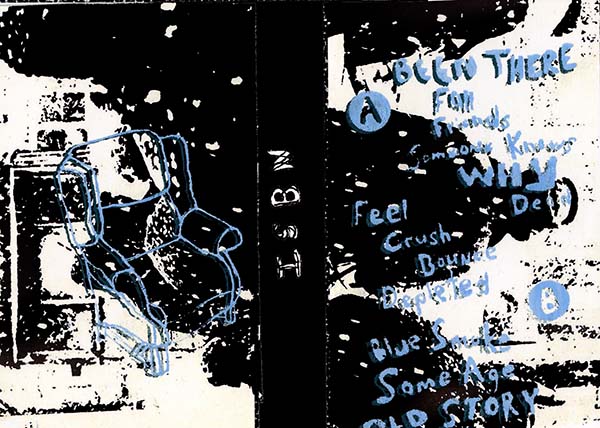 ISBN
BEEN THERE
A
Fall
Friends
Someone Knows
WHY
Feel
Crush
BOUNCE
Depleted
B
Blue Smoke
Same Age
OLD STORY